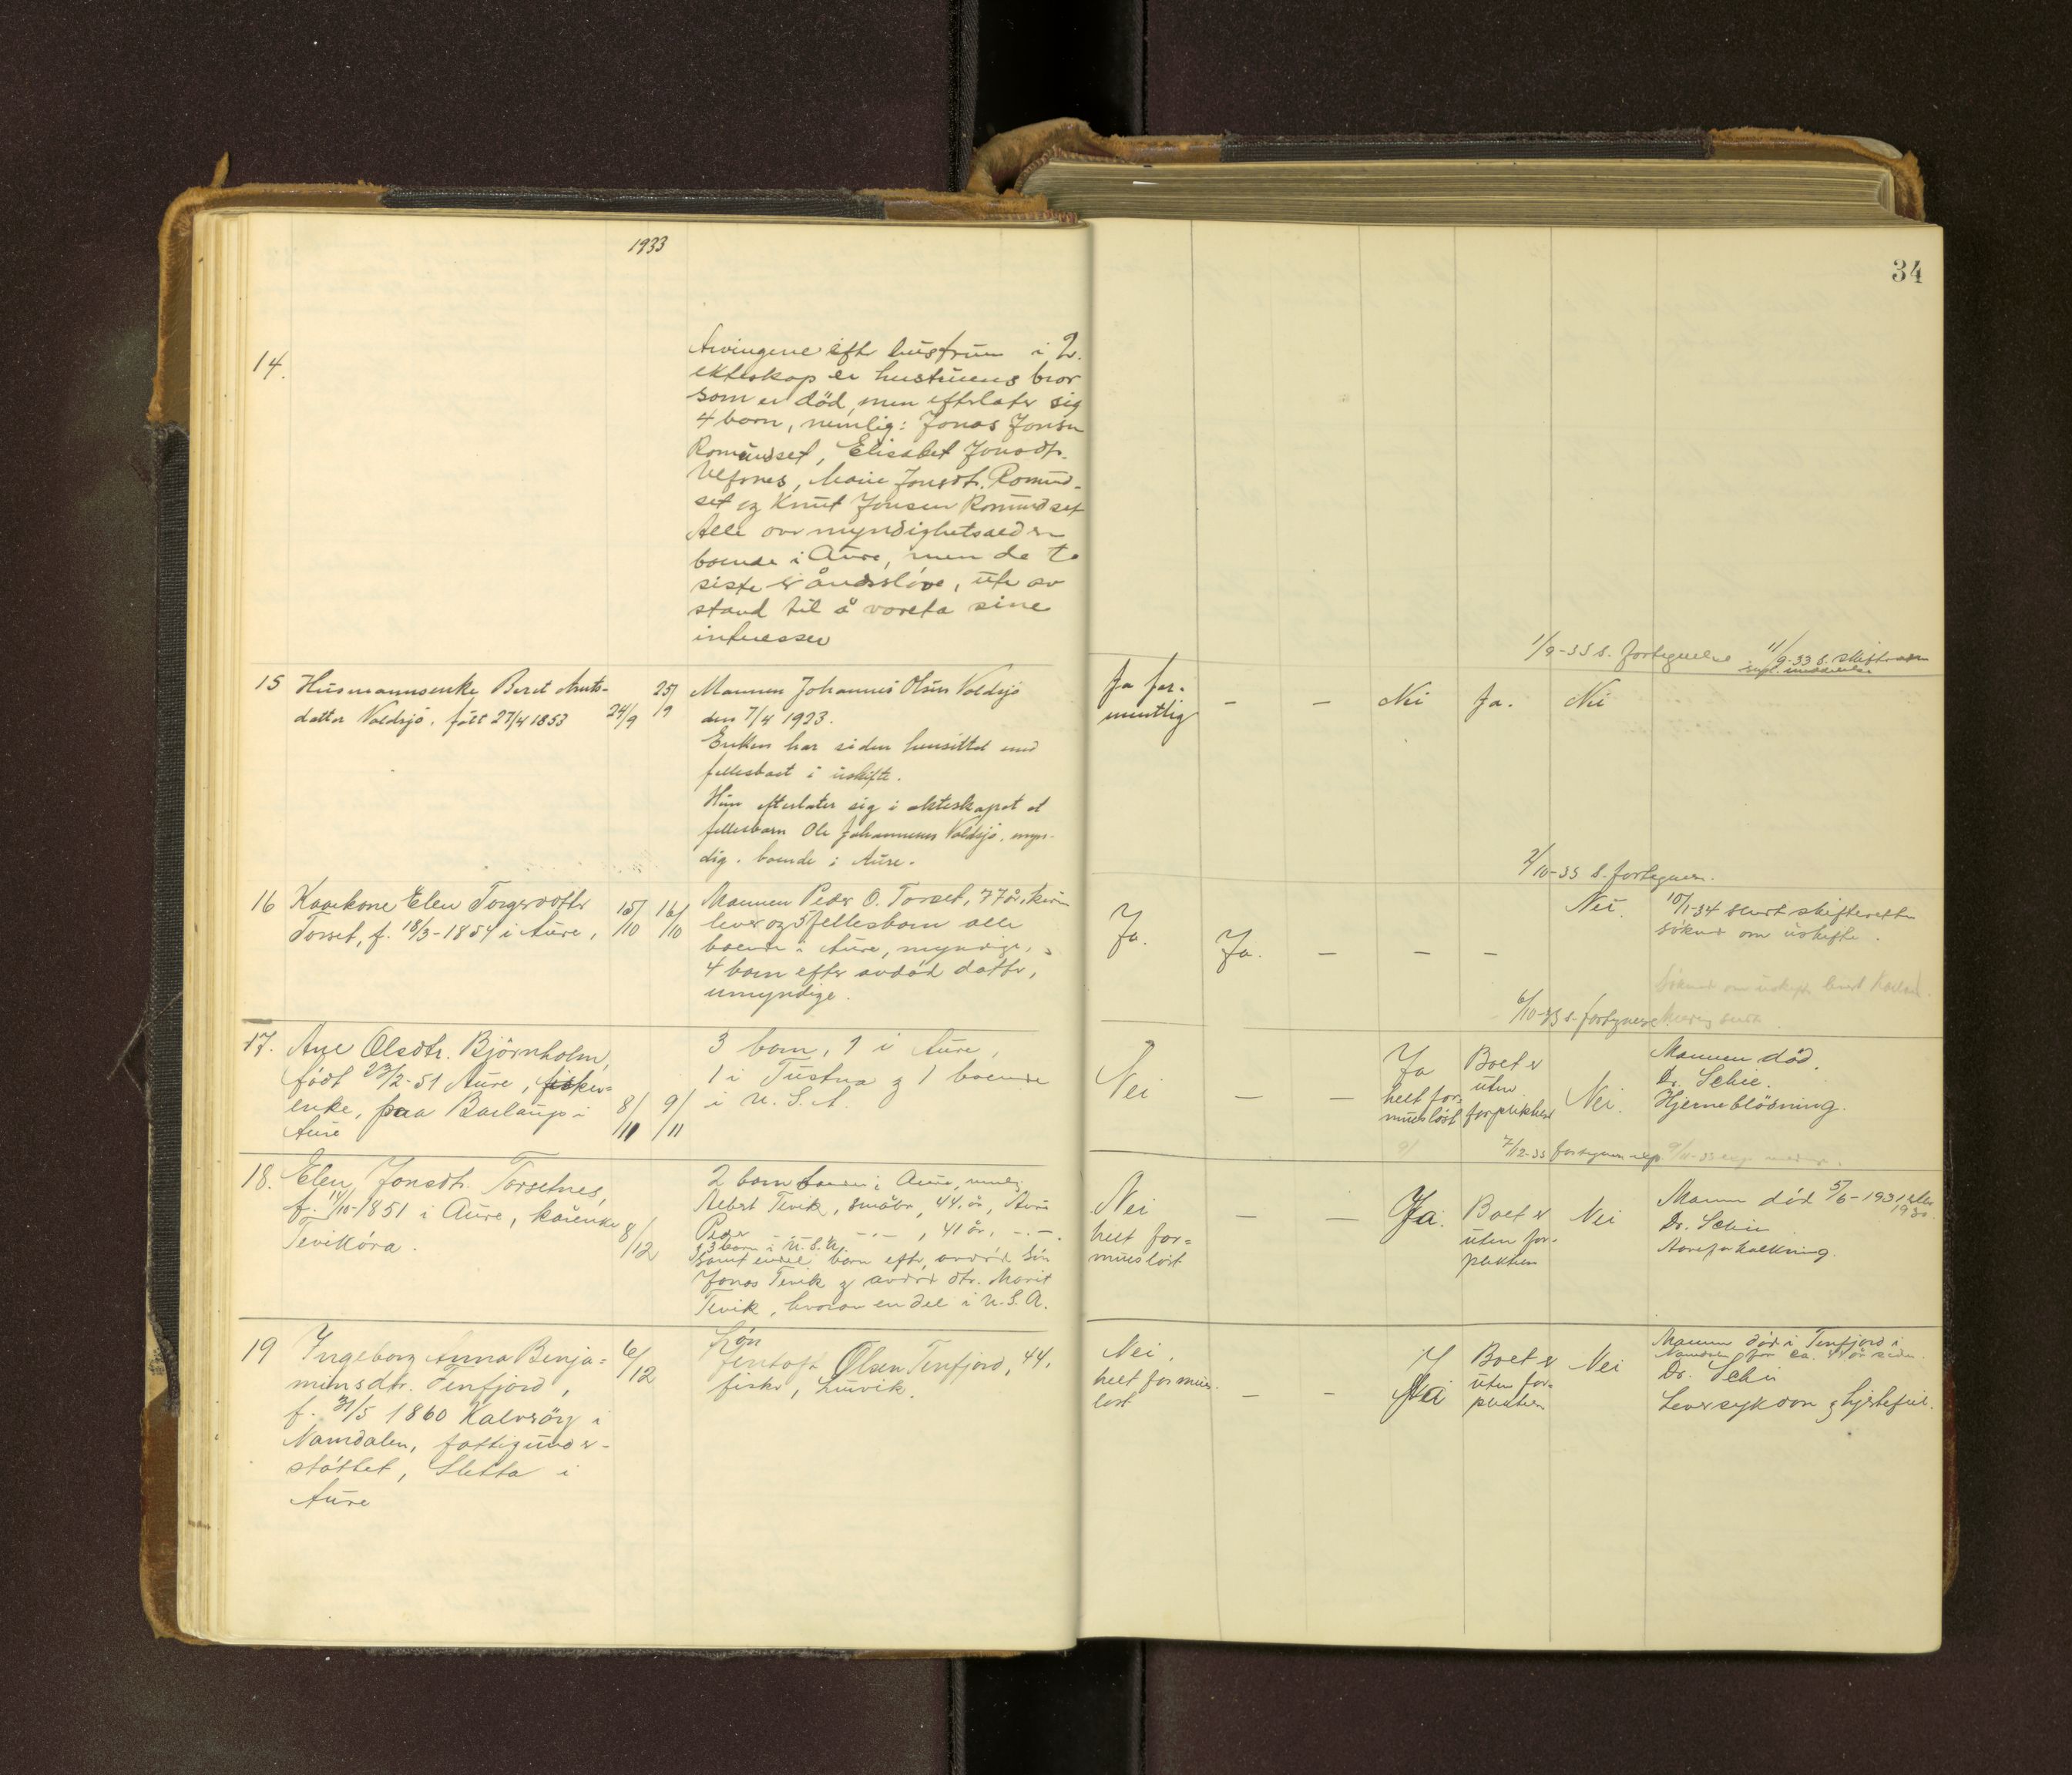 1933
34
14.
Arvingene efter hustruen i 2.
ekteskap er hustruens bror
som er död, men efterlater sig
4 born, nemlig: Jonas Jonsen
Romundset, Elisabet Jonsdtr.
Ulfsnes, Marie Jonsdtr. Romund-
set og Knut Jonsen Romundset
Alle over myndighetsalderen
boende i Aure, men de to
siste er åndssløve, ute av
stand til å vareta sine
interesser
1/9-33 s. fortegnelse 11/9-33 s. skifteretten
15 Husmannsenke Beret Knuts-
datter Valdsjö. født 27/4 1853
24/9
25/9
Mannen Johannes Olsen Valdsjö
den 7/4 1923.
Enken har siden hensittet med
fellesboet i uskifte.
Hun efterlater sig i ekteskapet et
fellesbarn Ole Johannesen Valdsjö, myn-
dig. boende i Aure.
Ja for-
mentlig
-
-
Nei
Ja.
Nei
2/10-33 s. fortegnen.
16 Kaarkone Elen Torgersdtr
Torset, f. 18/3-1854 i Aure,
15/10
16/10
Mannen Peder O. Torset, 77 år,
lever og 5 fellesborn alle
boende i Aure, myndige,
4 born efter avdöd datter,
umyndige.
Ja.
Ja.
-
-
-
Nei.
10/1-34 sendt skifteretten
söknad om uskifte.
Söknad om uskifte
6/10-33 s. fortegnelse
17. Ane Olsdtr. Björnholm,
födt 23/2-51 Aure, fisker-
enke, paa Baslaup i
Aure
8/11
9/11
3 born, 1 i Aure,
1 i Tustna og 1 boende
i U.S.A.
Nei
-
-
Ja
helt for-
muesløst
Boet er
uten
forpliktelser
Nei.
Mannen död.
Dr. Schie.
Hjerneblödning.
7/12-33 fortegnelse
18. Elen Jonsdtr. Torsetnes,
f. 14/10-1851 i Aure, kårenke
Tevikóra.
8/12
2 born boende i Aure, nemlig
Albert Tevik, småbr, 44 år, Aure
Peder -"- -"-, 41 år, -"-
og 3 born i U.S.A.
samt endel born efter avdöd sön
Jonas Tevik og avdöd dtr. Marit
Tevik, hvorav en del i U.S.A.
Nei
helt for-
muesløst
-
-
Ja.
Boet er
uten for-
pliktelser
Nei
Mannen död 5/6-1931 eller
1930.
Dr. Schie
Aareforkalkning.
19 Ingeborg Anna Benja-
minsdtr. Tenfjord,
f. 31/5 1860 Kalvsöy i
Namdalen, fattigunder-
støttet, Sletta i
Aure
6/12
Sön
Jentoft Olsen Tenfjord, 44,
fisker, Lurvik.
Nei,
helt formues-
løst
-
-
Ja
Boet er
uten for-
pliktelser
Nei
Mannen död i Tenfjord i
Namdalen for ca. 44 år siden.
Dr. Schie
Leversykdom og hjertefeil.